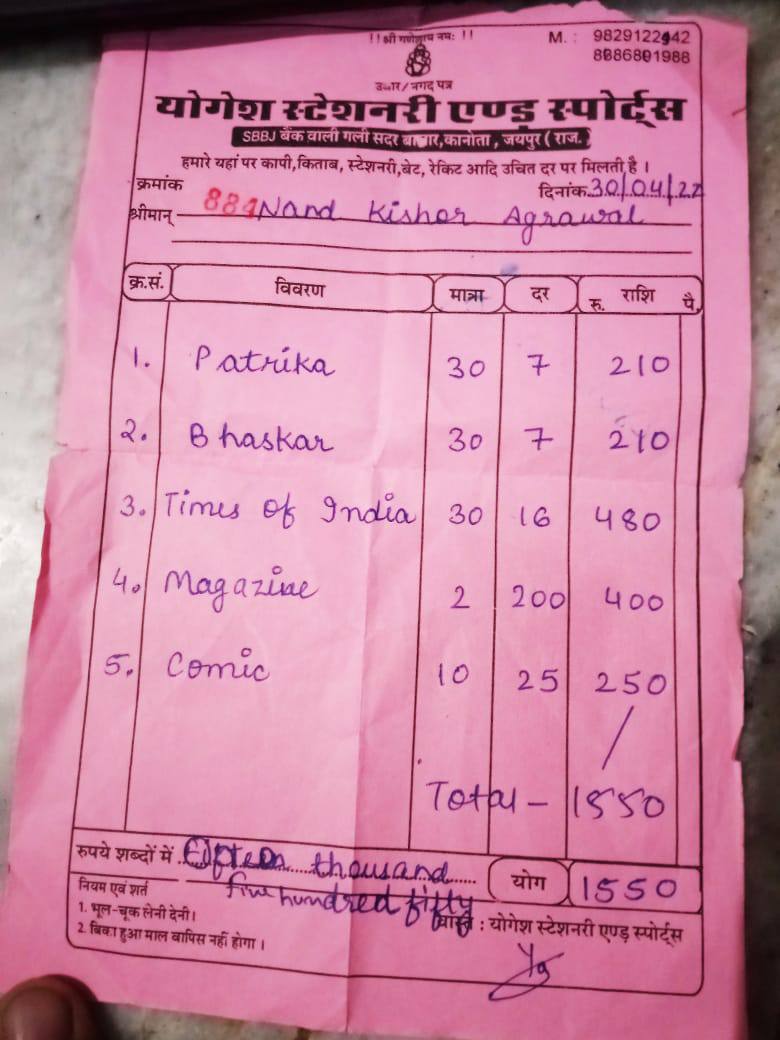 !! श्री गणेशाय नमः !!
M. : 9829122442
8686801988
उधार/नगद पत्र
योगेश स्टेशनरी एण्ड स्पोर्ट्स
SBBJ बैंक वाली गली सदर बाजार, कानोता, जयपुर (राज.)
हमारे यहां पर कापी, किताब, स्टेशनरी, बेट, रेकिट आदि उचित दर पर मिलती है।
क्रमांक 884 दिनांक 30/04/22
श्रीमान् Nand Kishor Agrawal
क्र.सं. विवरण मात्रा दर रु. राशि पै.
1. Patrika 30 7 210
2. Bhaskar 30 7 210
3. Times of India 30 16 480
4. Magazine 2 200 400
5. Comic 10 25 250
Total - 1550
रुपये शब्दों में Fifteen thousand योग 1550
five hundred fifty
नियम एवं शर्त
1. भूल-चूक लेनी देनी। वास्ते : योगेश स्टेशनरी एण्ड स्पोर्ट्स
2. बिका हुआ माल वापिस नहीं होगा।